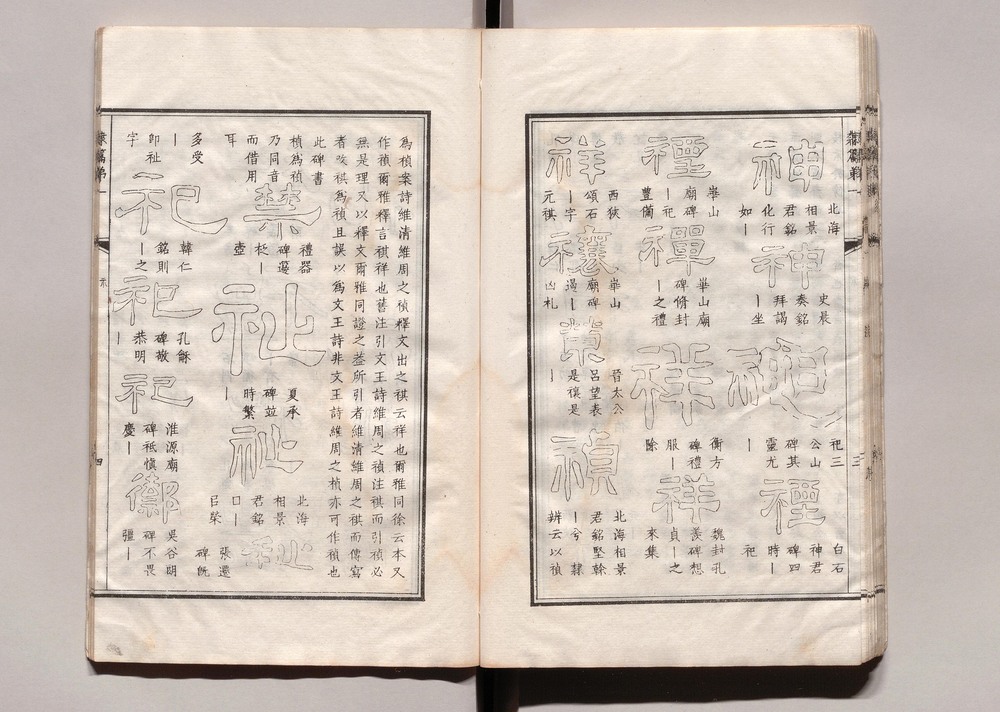 神
北海
相景
君銘
化行
如丨
神
史晨
奏銘
拜謁
丨坐
神
祀三
公山
碑其
靈尤
丨
禋
白石
神君
碑四
時丨
祀
禋
華山
廟碑
丨祀
豐備
禪
華山廟
碑脩封
丨之禮
祥
衡方
碑禮
服丨
除
祥
魏封孔
羨碑想
貞丨之
來集
祥
西狹
頌石
丨字
元祺
禳
華山
廟碑
遏丨
凶札
禜
晉太公
呂望表
是禳是
丨
禎
北海相景
君銘堅幹
丨兮 隸
辨云以禎
為禎案詩維清維周之禎釋文出之祺云祥也爾雅同徐云本又
作禎爾雅釋言祺祥也舊注引文王詩維周之禎注祺而引禎必
無是理又以釋文爾雅同證之葢所引者維清維周之祺而傳寫
者改祺為禎且誤以為文王詩非文王詩維周之楨亦可作禎也
此碑書
禎為楨
乃同音
而借用
耳
禁
禮器
碑籩
柉丨
壺
祉
夏承
碑並
時繁
丨
祉
北海
相景
君銘
丨
吕榮
祉
張遷
碑旣
多受
丨
即祉
字
祀
韓仁
銘則
丨之
祀
孔龢
碑敬
恭明
丨
祀
淮源廟
碑祗慎
慶丨
禦
吳谷朗
碑不畏
彊丨
隸篇弟一
四